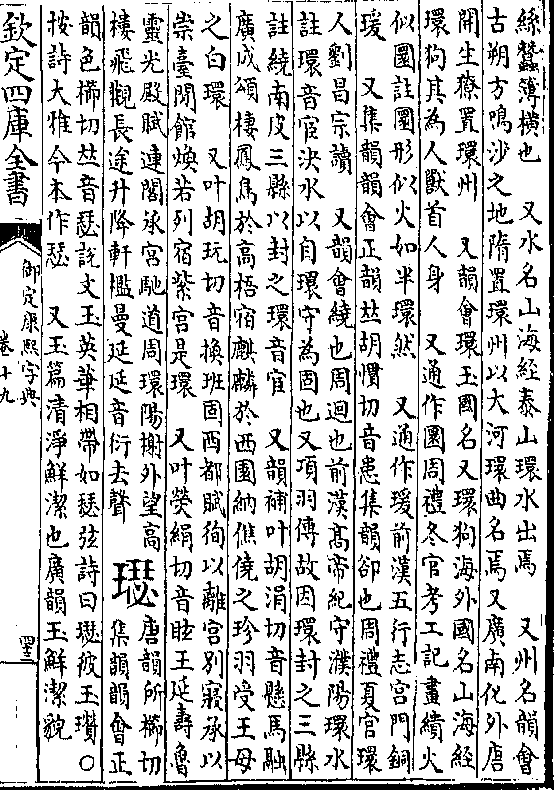 絲蠶簿横也　又水名山海經泰山環水出焉　又州名韻會
古朔方鳴沙之地隋置環州以大河環曲名焉又廣南化外唐
開生獠置環州　又韻會環玉國名又環狗海外國名山海經
環狗其為人獸首人身　又通作圜周禮冬官考工記畫繢火
似圜註圜形似火如半環然　又通作瑗前漢五行志宫門銅
瑗　又集韻韻會正韻𠀤胡慣切音患集韻卻也周禮夏官環
人劉昌宗讀　又韻會繞也周迴也前漢髙帝紀守濮陽環水
註環音宦決水以自環守為固也又項羽傳故因環封之三縣
註繞南皮三縣以封之環音宦　又韻補叶胡涓切音懸馬融
廣成頌棲鳳鳥於高梧宿麒麟於西園納僬僥之珍羽受王母
之白環　又叶胡玩切音換班固西都賦徇以離宫别寢承以
崇臺閒館煥若列宿紫宫是環　又叶熒絹切音眩王延壽魯
靈光殿賦連閣承宫馳道周環陽榭外望高
樓飛觀長途升降軒檻曼延延音衍去聲　璱　唐韻所櫛切
集韻韻會正
韻色櫛切𠀤音瑟說文玉英華相帶如瑟弦詩曰璱彼玉瓚○
按詩大雅今本作瑟　又玉篇清淨鮮潔也廣韻玉鮮潔貌
欽定四庫全書
御定康熙字典
卷十九